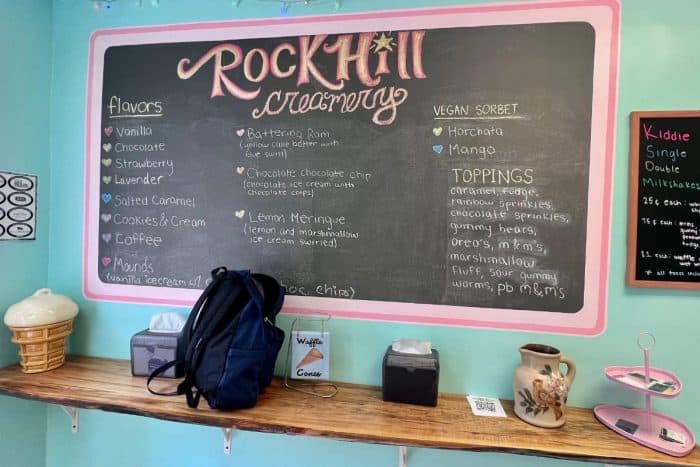 RockHill
creamery
flavors
Vanilla
Chocolate
Strawberry
Lavender
Salted Caramel
Cookies & Cream
Coffee
Mounds
(vanilla icecream w/
choc chips)
Battering Ram
(yellow cake batter with
blue swirl)
Chocolate chocolate chip
(chocolate ice cream with
chocolate chips)
Lemon Meringue
(lemon and marshmallow
ice cream swirled)
VEGAN SORBET
Horchata
Mango
TOPPINGS
caramel, fudge,
rainbow sprinkles,
chocolate sprinkles,
gummy bears,
oreo's, m&m's,
marshmallow
fluff, sour gummy
worms, pb m&m's
Kiddie
Single
Double
Milkshakes
25¢ each:
75¢ each:
$1 each: waffle
Waffle
Cones